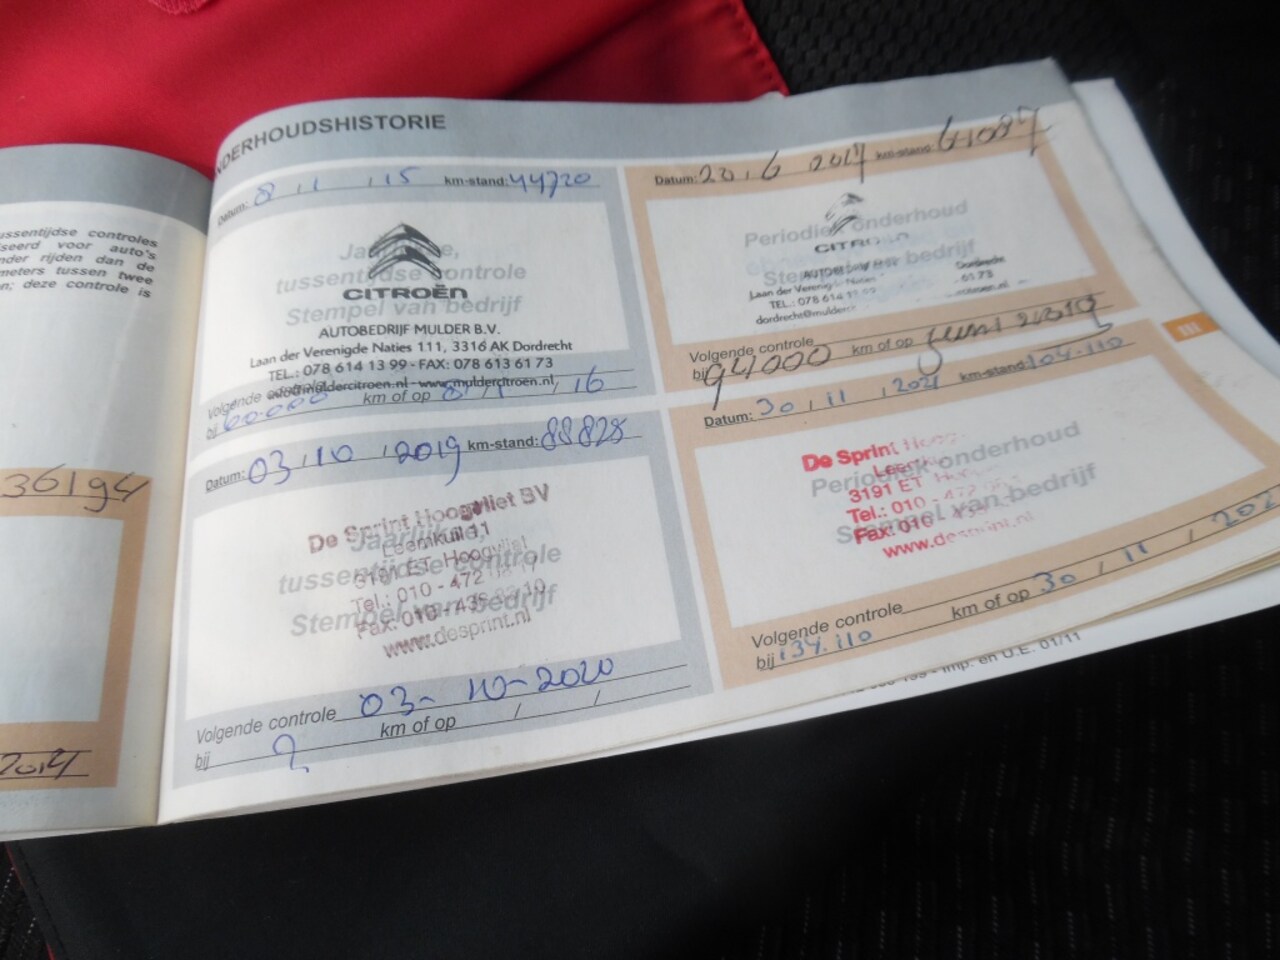 ussentijdse controles
seerd voor auto's
nder rijden dan de
meters tussen twee
n; deze controle is
36194
NDERHOUDSHISTORIE
Datum: 8 , 1 , 15 km-stand: 44720
Jaarlijkse,
tussentijdse controle
Stempel van bedrijf
CITROËN
AUTOBEDRIJF MULDER B.V.
Laan der Verenigde Naties 111, 3316 AK Dordrecht
TEL.: 078 614 13 99 - FAX: 078 613 61 73
info@muldercitroen.nl - www.muldercitroen.nl
Volgende controle
bij 60.000 km of op 8 / 1 / 16
Datum: 20 , 6 2017 km-stand: 61087
Periodiek onderhoud
CITROËN
Stempel van bedrijf
AUTOBEDRIJF
Laan der Verenig Naties Dordrecht
TEL.: 078 614 61 73
dordrecht@mulderc
Volgende controle
bij 94000 km of op juni 2019
Datum: 03 , 10 , 2019 km-stand: 88828
De Sprint Hoogvliet BV
Jaarlijkse,
Leemkuil 11
tussentijdse controle
3191 ET Hoogvliet
Tel.: 010 - 472
Stempel van bedrijf
Fax: 010 - 435
www.desprint.nl
Volgende controle 03-10-2020
bij ? km of op / /
Datum: 30 , 11 , 2021 km-stand: 104.110
De Sprint Hoog
Periodiek onderhoud
Leem
3191 ET
Tel.: 010 - 472
Stempel van bedrijf
Fax: 010
www.desprint.nl
Volgende controle
bij 134.110 km of op 30 / 11 / 202
III
Imp. en U.E. 01/11